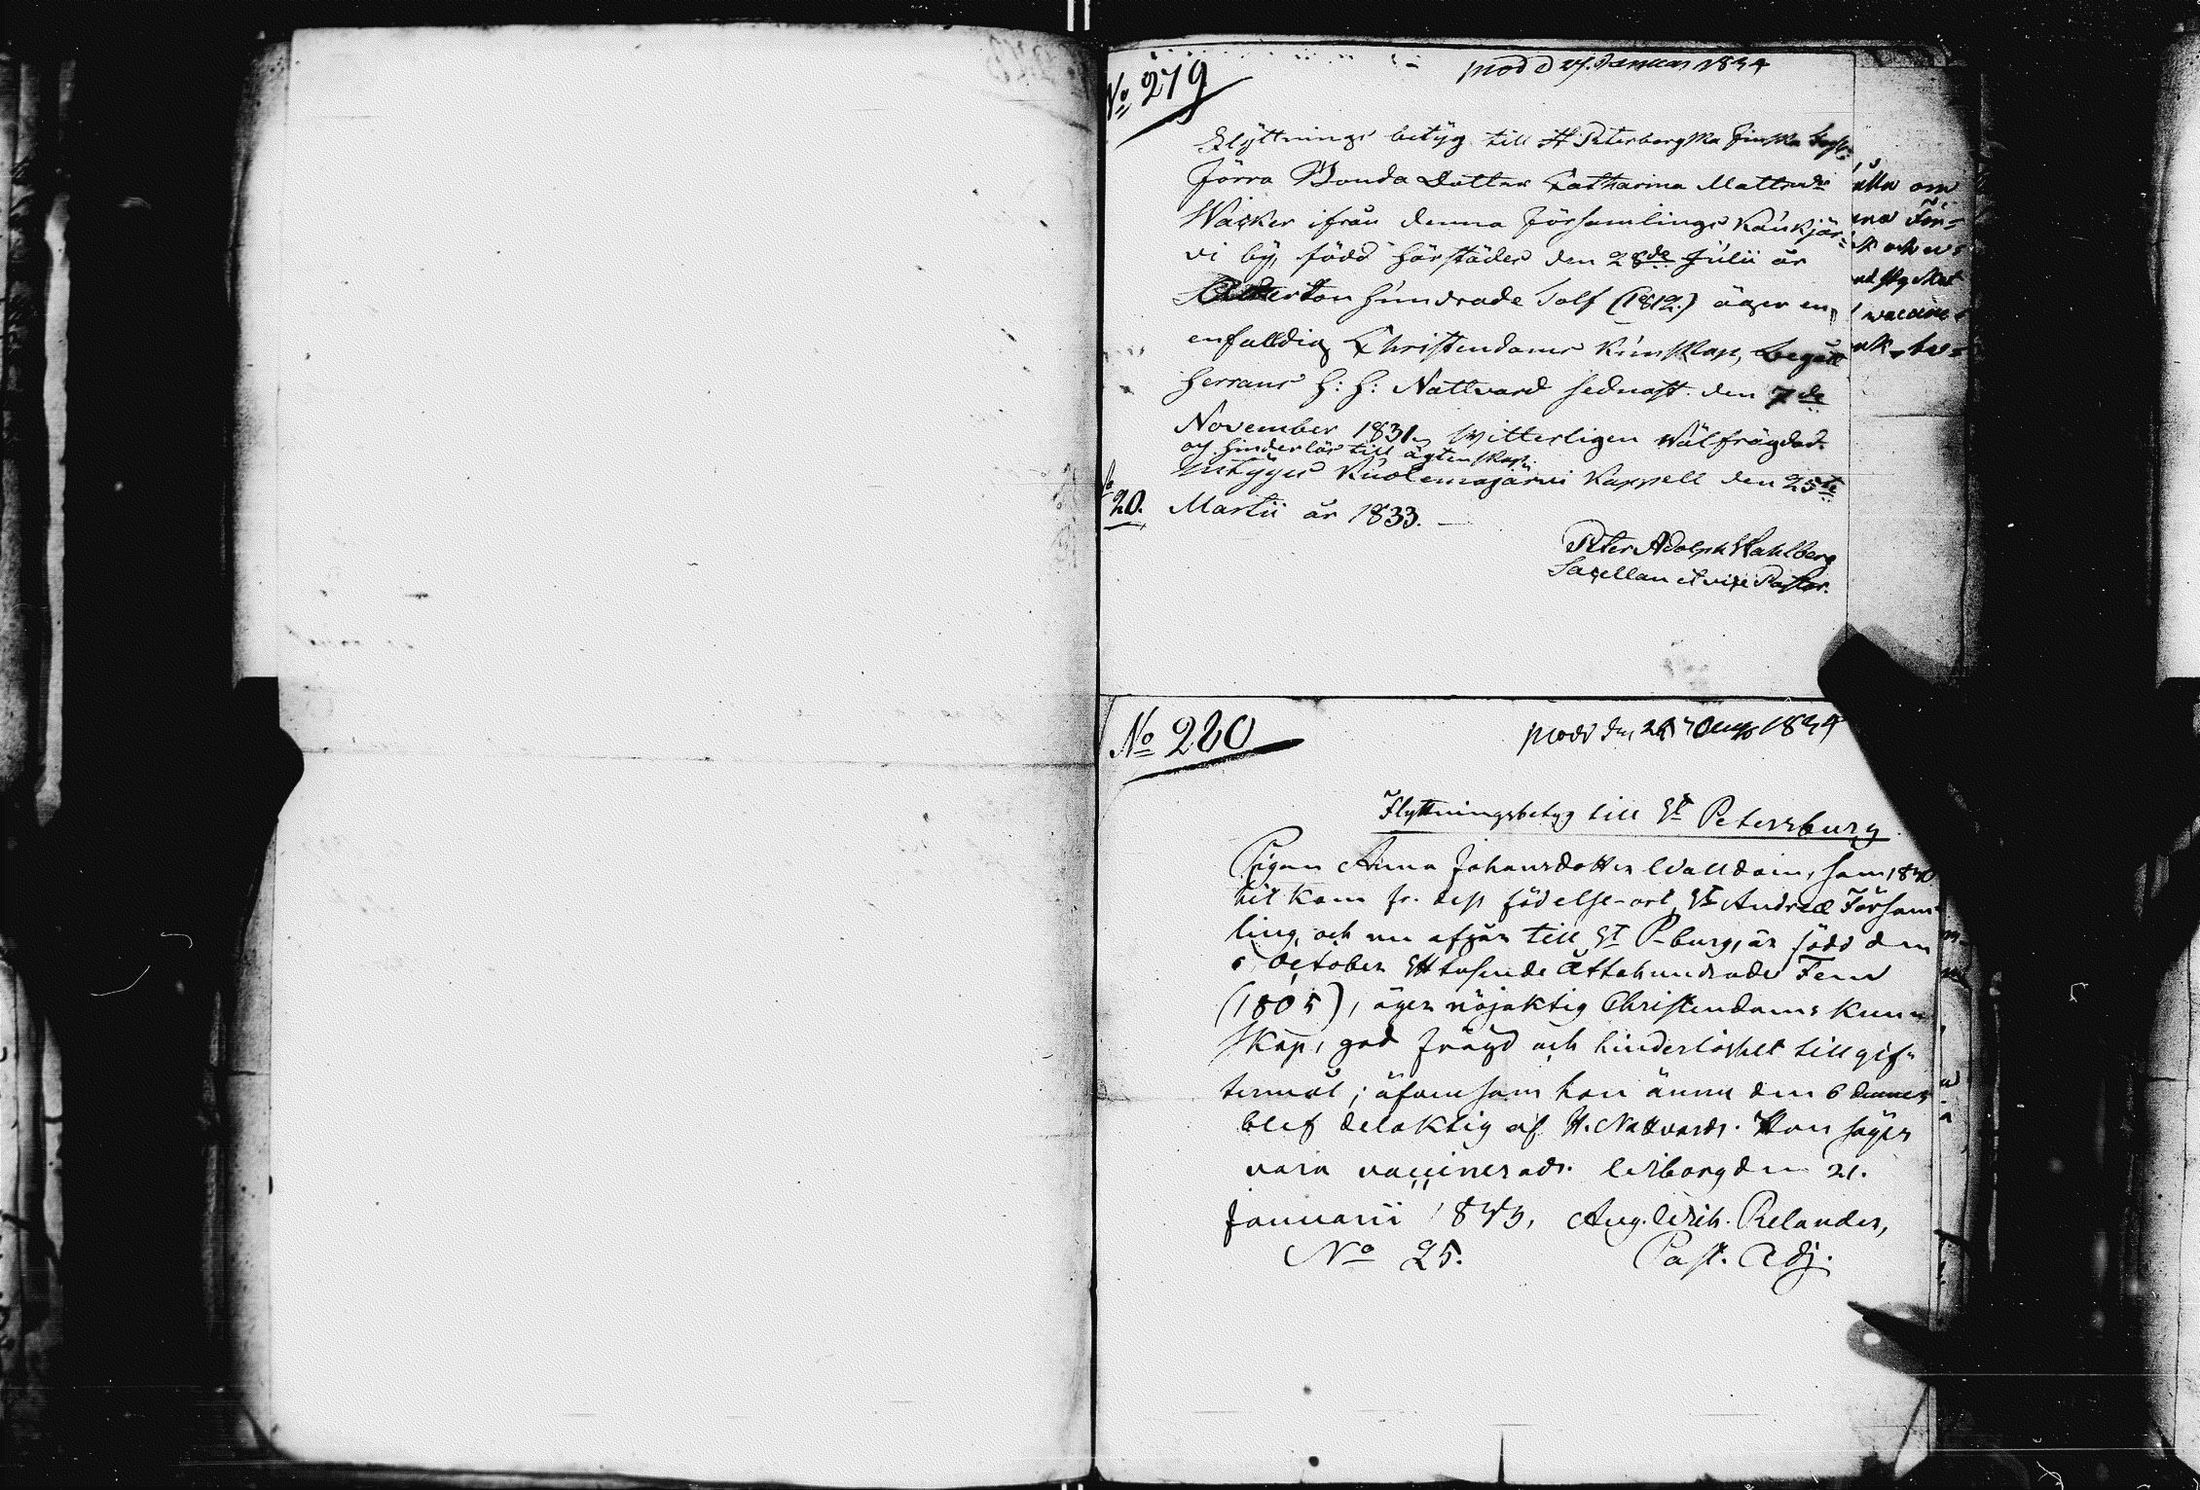 No 279
prod d 27 Januar 1834
Flyttnings betÿg till St Petersborgska Finska
förra Bonda Dotter Catharina Mattsdr
Wasker ifrån denna församlings Kaukjär=
vi bÿ, född härstädes den 28de Julii år
Aderton hundrade Tolf (1812.) äger en
enfalldig Christendoms kunskap, begått
Herrans H: H: Nattvard sednast den 7de
November 1831, Witterligen wälfrägdad
och hinderlös till ägtenskap;
betÿgas Kuolemajärvi Kappell den 25te
No 20. Martii år 1833.
Peter Adolph Wahlberg
Sacellan et vice Pastor.
älla om
No 280
prod den 24 1834
Flyttningsbetyg till St Petersburg
Pigan Anna Johansdotter Walldoin, som 1830
hit kom fr. dess födelse-ort St Andreæ Församl
ling, och nu afgår till St P-burg, är född den
6 October Ett tusende Åttahundrade Fem
(1805), äger nöjaktig Christendoms kunn
skap, god frägd och hinderlöshet till gif=
termål; äfvensom hon ännu den 6 dennes
blef delaktig af H. Nattvards. Hon säges
vara vaccinerad. Wiborg den 21.
Januarii 1833, Aug. Wilh. Relander,
No 25. Past. Adj.